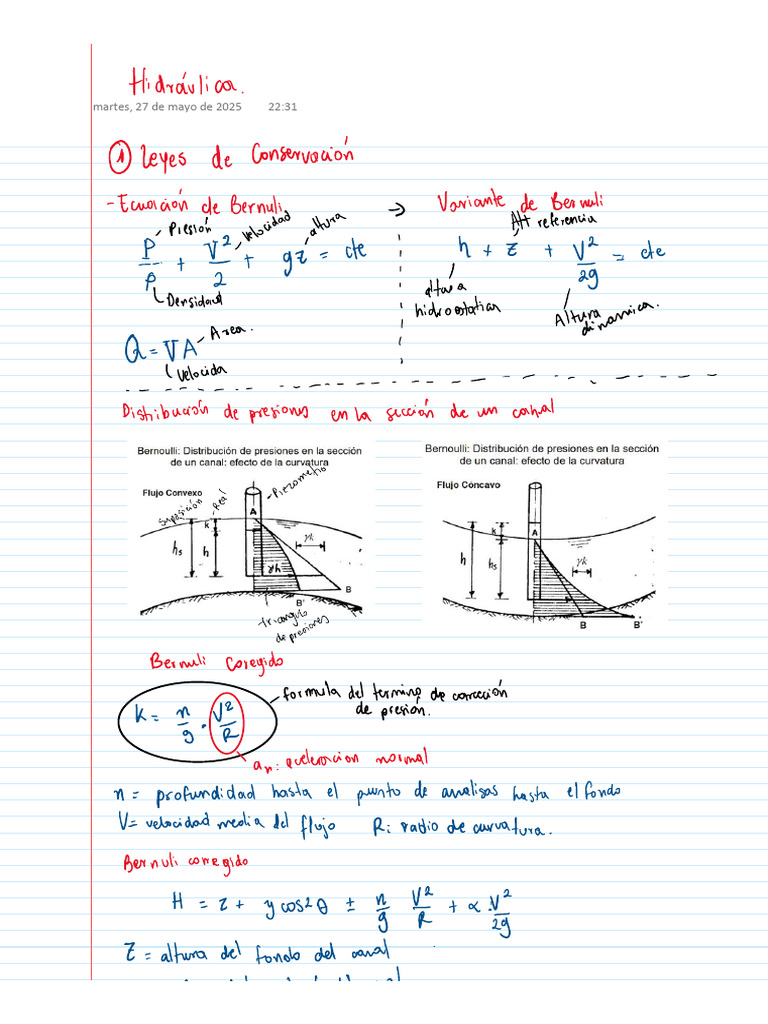 Hidráulica.
martes, 27 de mayo de 2025 22:31
① Leyes de Conservación
- Ecuación de Bernuli → Variante de Bernuli
Presión velocidad altura Alt referencia
P/ρ + V²/2 + gz = cte
h + z + V²/2g = cte
Densidad
altura hidrostatica
Altura dinamica.
Q = VA Area.
velocida
Distribución de presiones en la sección de un canal
Bernoulli: Distribución de presiones en la sección
de un canal: efecto de la curvatura
Flujo Convexo
suposición Real Piezometro
A
k
hs h
γk
γh
B
B'
triangulo
de presiones
Bernoulli: Distribución de presiones en la sección
de un canal: efecto de la curvatura
Flujo Cóncavo
A
k
h hs
γk
B B'
Bernuli Coregido
k = n/g · V²/R
formula del termino de corrección
de presión.
an: aceleracion normal
n = profundidad hasta el punto de analisas hasta el fondo
V = velocidad media del flujo R: radio de curvatura.
Bernuli corregido
H = z + y cos2θ ± n/g V²/R + α V²/2g
Z = altura del fondo del canal